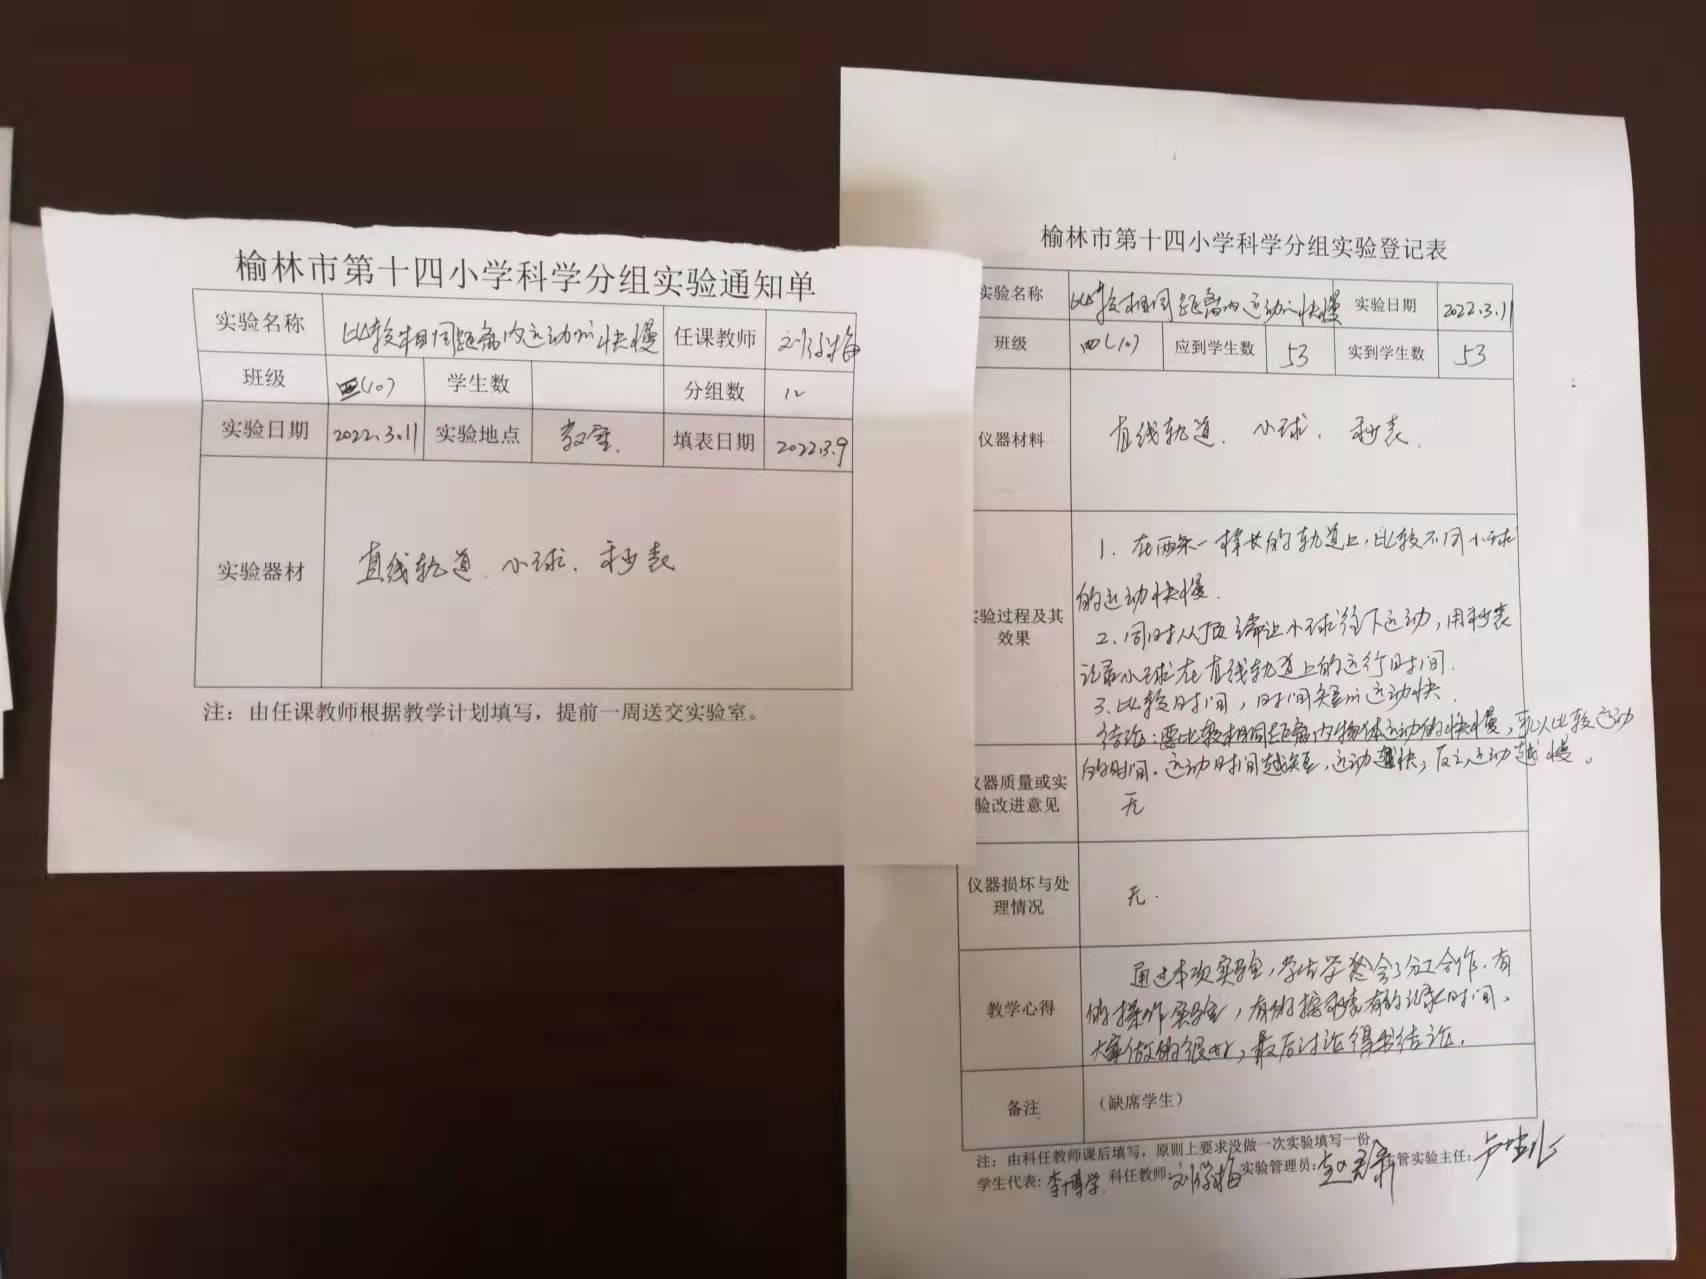 榆林市第十四小学科学分组实验通知单
实验名称 比较相同距离内运动的快慢 任课教师
班级 四(10) 学生数 分组数 12
实验日期 2022.3.11 实验地点 教室. 填表日期 2022.3.9
实验器材 直线轨道、小球、秒表
注：由任课教师根据教学计划填写，提前一周送交实验室。
榆林市第十四小学科学分组实验登记表
实验名称 比较相同距离内运动的快慢 实验日期 2022.3.11
班级 四(10) 应到学生数 53 实到学生数 53
仪器材料 直线轨道、小球、秒表.
验过程及其
效果
1、在两条一样长的轨道上，比较不同小球
的运动快慢.
2、同时从顶端让小球往下运动，用秒表
记录小球在直线轨道上的运行时间.
3、比较时间，时间短的运动快.
结论：要比较相同距离内物体运动的快慢，可以比较运动
的时间.运动时间越短，运动越快，反之运动越慢。
仪器质量或实
验改进意见
无
仪器损坏与处
理情况
无.
教学心得
通过本次实验，学生学会了分工合作，有
的操作实验，有的按秒表有的记录时间、
大家做的很好，最后讨论得出结论.
备注 （缺席学生）
注：由科任教师课后填写，原则上要求没做一次实验填写一份
学生代表: 李博学 科任教师: 实验管理员: 主管实验主任: